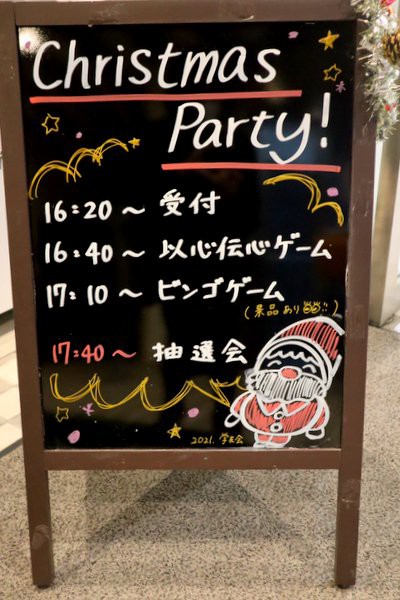 Christmas
Party!
16:20〜 受付
16:40〜 以心伝心ゲーム
17:10〜 ビンゴゲーム
(景品あり!!)
17:40〜 抽選会
2021. 学友会